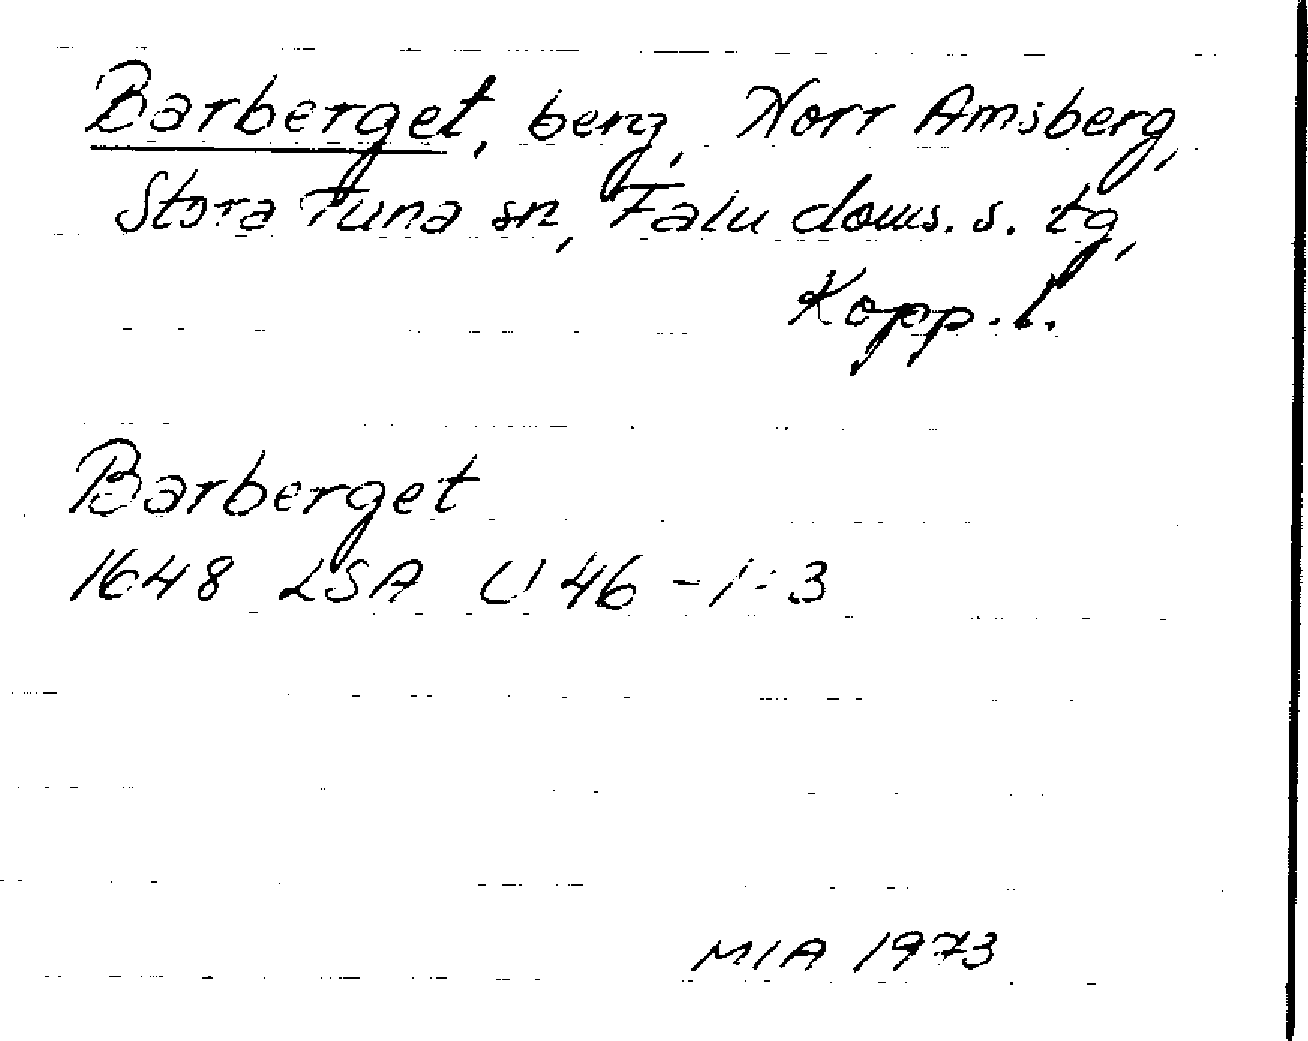 Barberget, berg, Norr Amsberg,
Stora Tuna sn, Falu doms. s. tg,
Kopp. l.
Barberget
1648 LSA U 46 - 1:3
MIA 1973